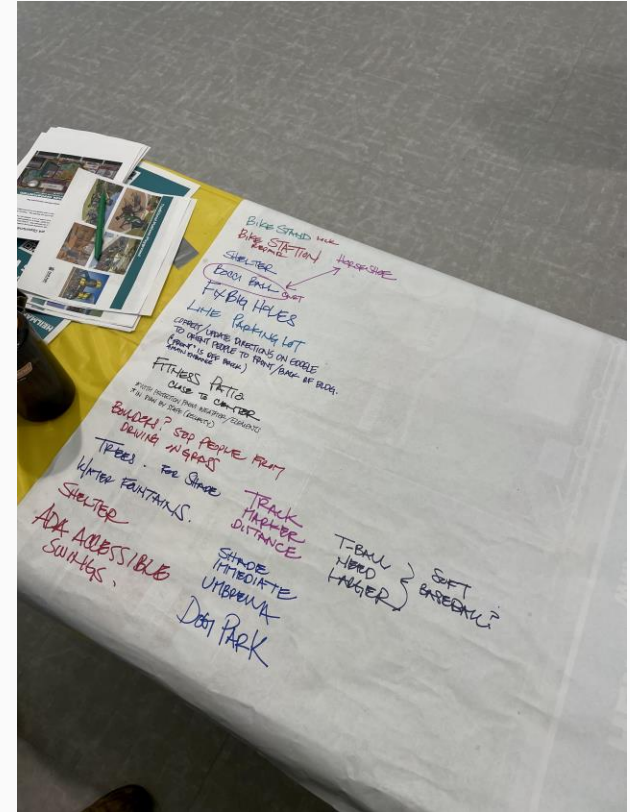 BIKE STAND
BIKE STATION
REPAIR
HORSE SHOE
SHELTER
BOCCI BALL COURT
FIX BIG HOLES
LINE PARKING LOT
CORRECT/UPDATE DIRECTIONS ON GOOGLE
TO ORIENT PEOPLE TO FRONT/BACK OF BLDG.
("FRONT" IS OFF BACK)
MAIN ENTRANCE
FITNESS PATIO
CLOSE TO CENTER
*WITH PROTECTION FROM WEATHER/ELEMENTS
BOULDERS? STOP PEOPLE FROM
DRIVING IN GRASS
TREES. FOR SHADE
WATER FOUNTAINS.
SHELTER
ADA ACCESSIBLE
SWINGS.
TRACK
MARKER
DISTANCE
SHADE
IMMEDIATE
UMBRELLA
DOG PARK
T-BALL
NEED
LARGER
SOFT
BASEBALL?
HEILMAN